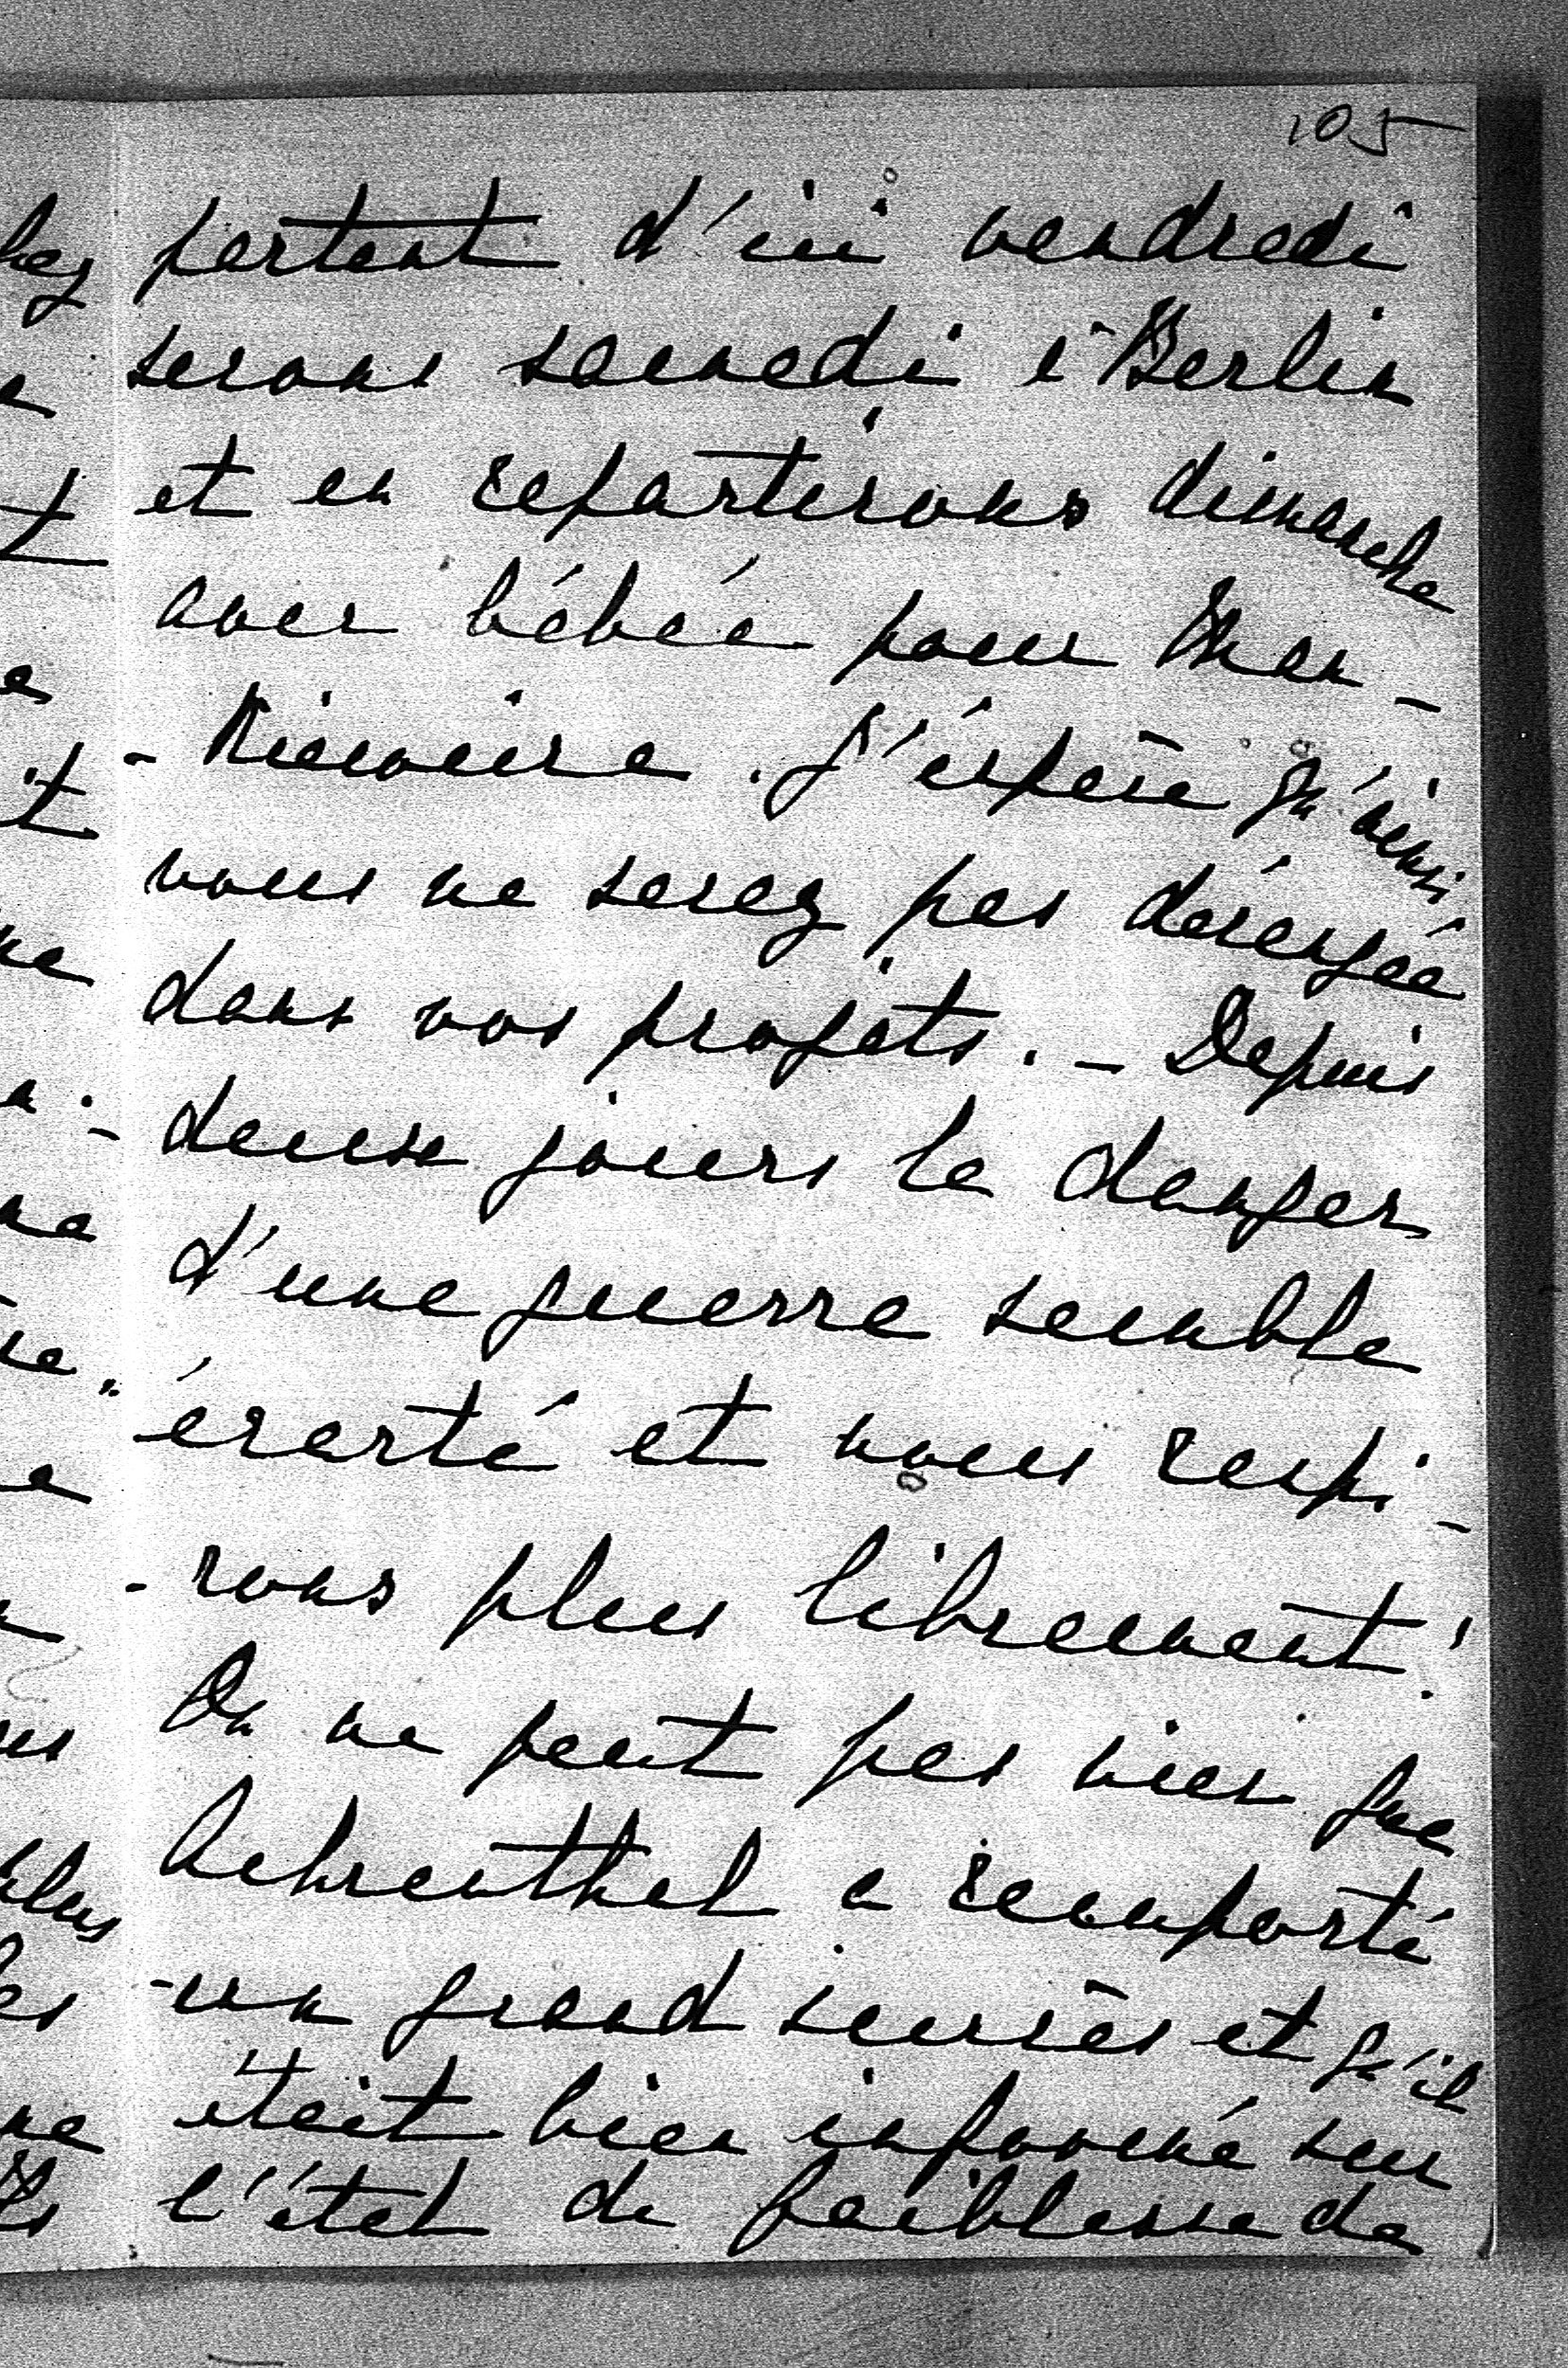 105
partant d'ici vendredi
serons samedi à Berlin
et en repartirons dimanche
avec bébée pour Man-
-Kiewicze. J'espère qu'ainsi
vous ne serez pas dérangée
dans vos projets. - Depuis
deux jours le danger
d'une guerre semble
écarté et nous respi-
-rons plus librement!
On ne peut pas nier que
Aehrenthal a remporté
un grand succès et qu'il
était bien informé sur
l'état de faiblesse de